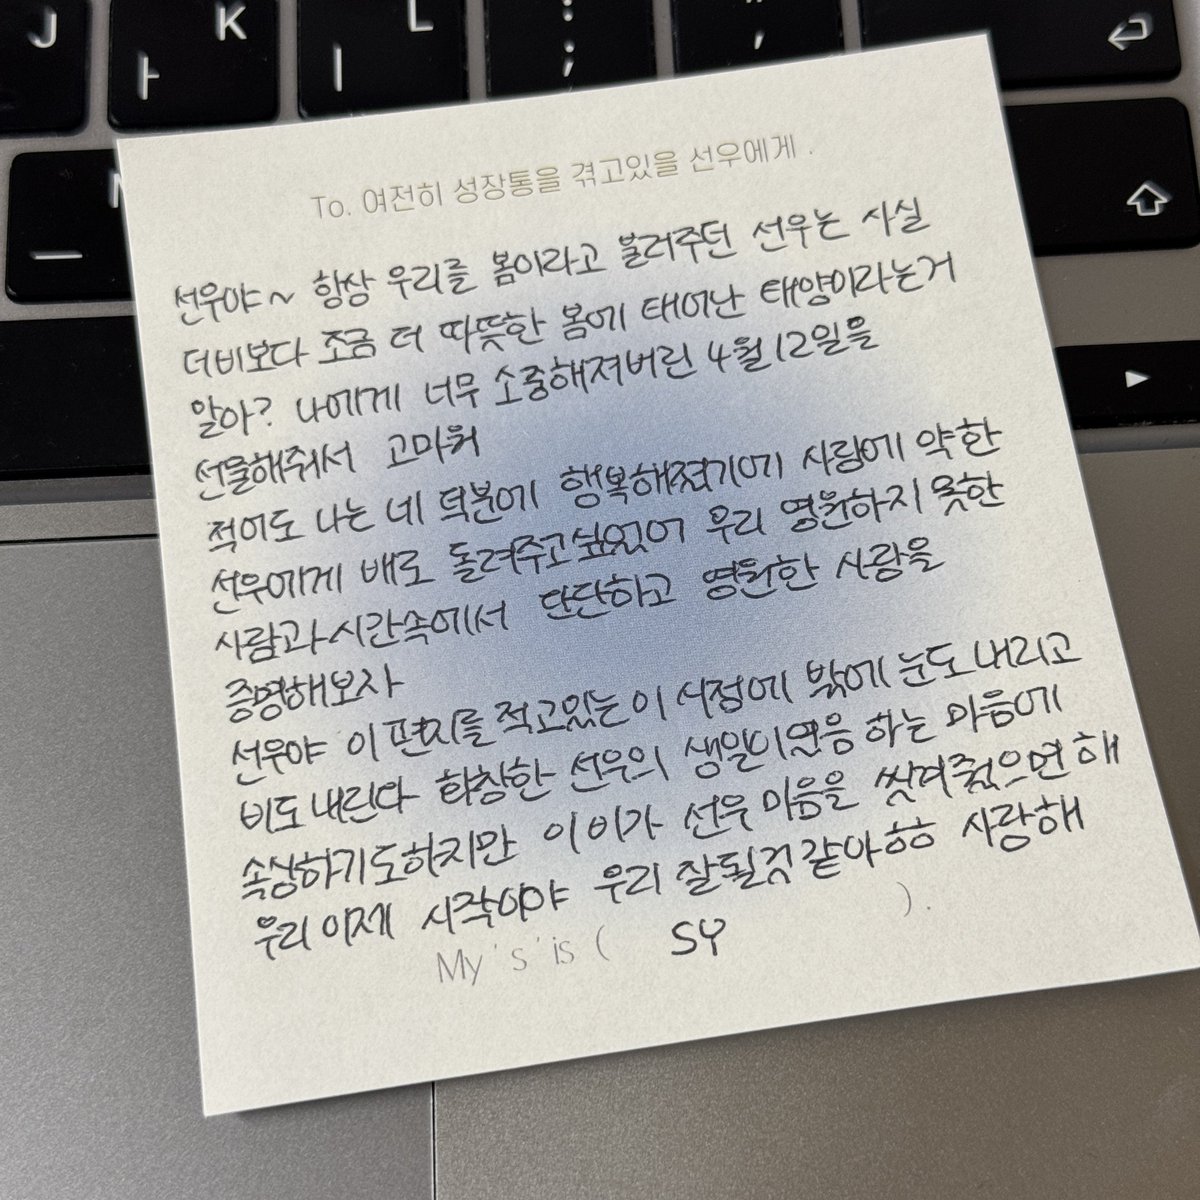 J
K
L
ㅏ
ㅣ
;
:
,
"
To. 여전히 성장통을 겪고있을 선우에게 .
선우야~ 항상 우리를 봄이라고 불러주던 선우는 사실
더비보다 조금 더 따뜻한 봄에 태어난 태양이라는거
알아? 나에게 너무 소중해져버린 4월 12일을
선물해줘서 고마워
적어도 나는 네 덕분에 행복해졌기에 사람에 약한
선우에게 배로 돌려주고싶었어 우리 영원하지 못한
사람과 시간속에서 단단하고 영원한 사랑을
증명해보자
선우야 이 편지를 적고있는 이 시점에 밖에 눈도 내리고
비도 내린다 화창한 선우의 생일이였음 하는 마음에
속상하기도하지만 이 비가 선우 마음을 씻겨줬으면 해
우리 이제 시작이야 우리 잘될것같아ㅎㅎ 사랑해
My 's' is ( SY ).